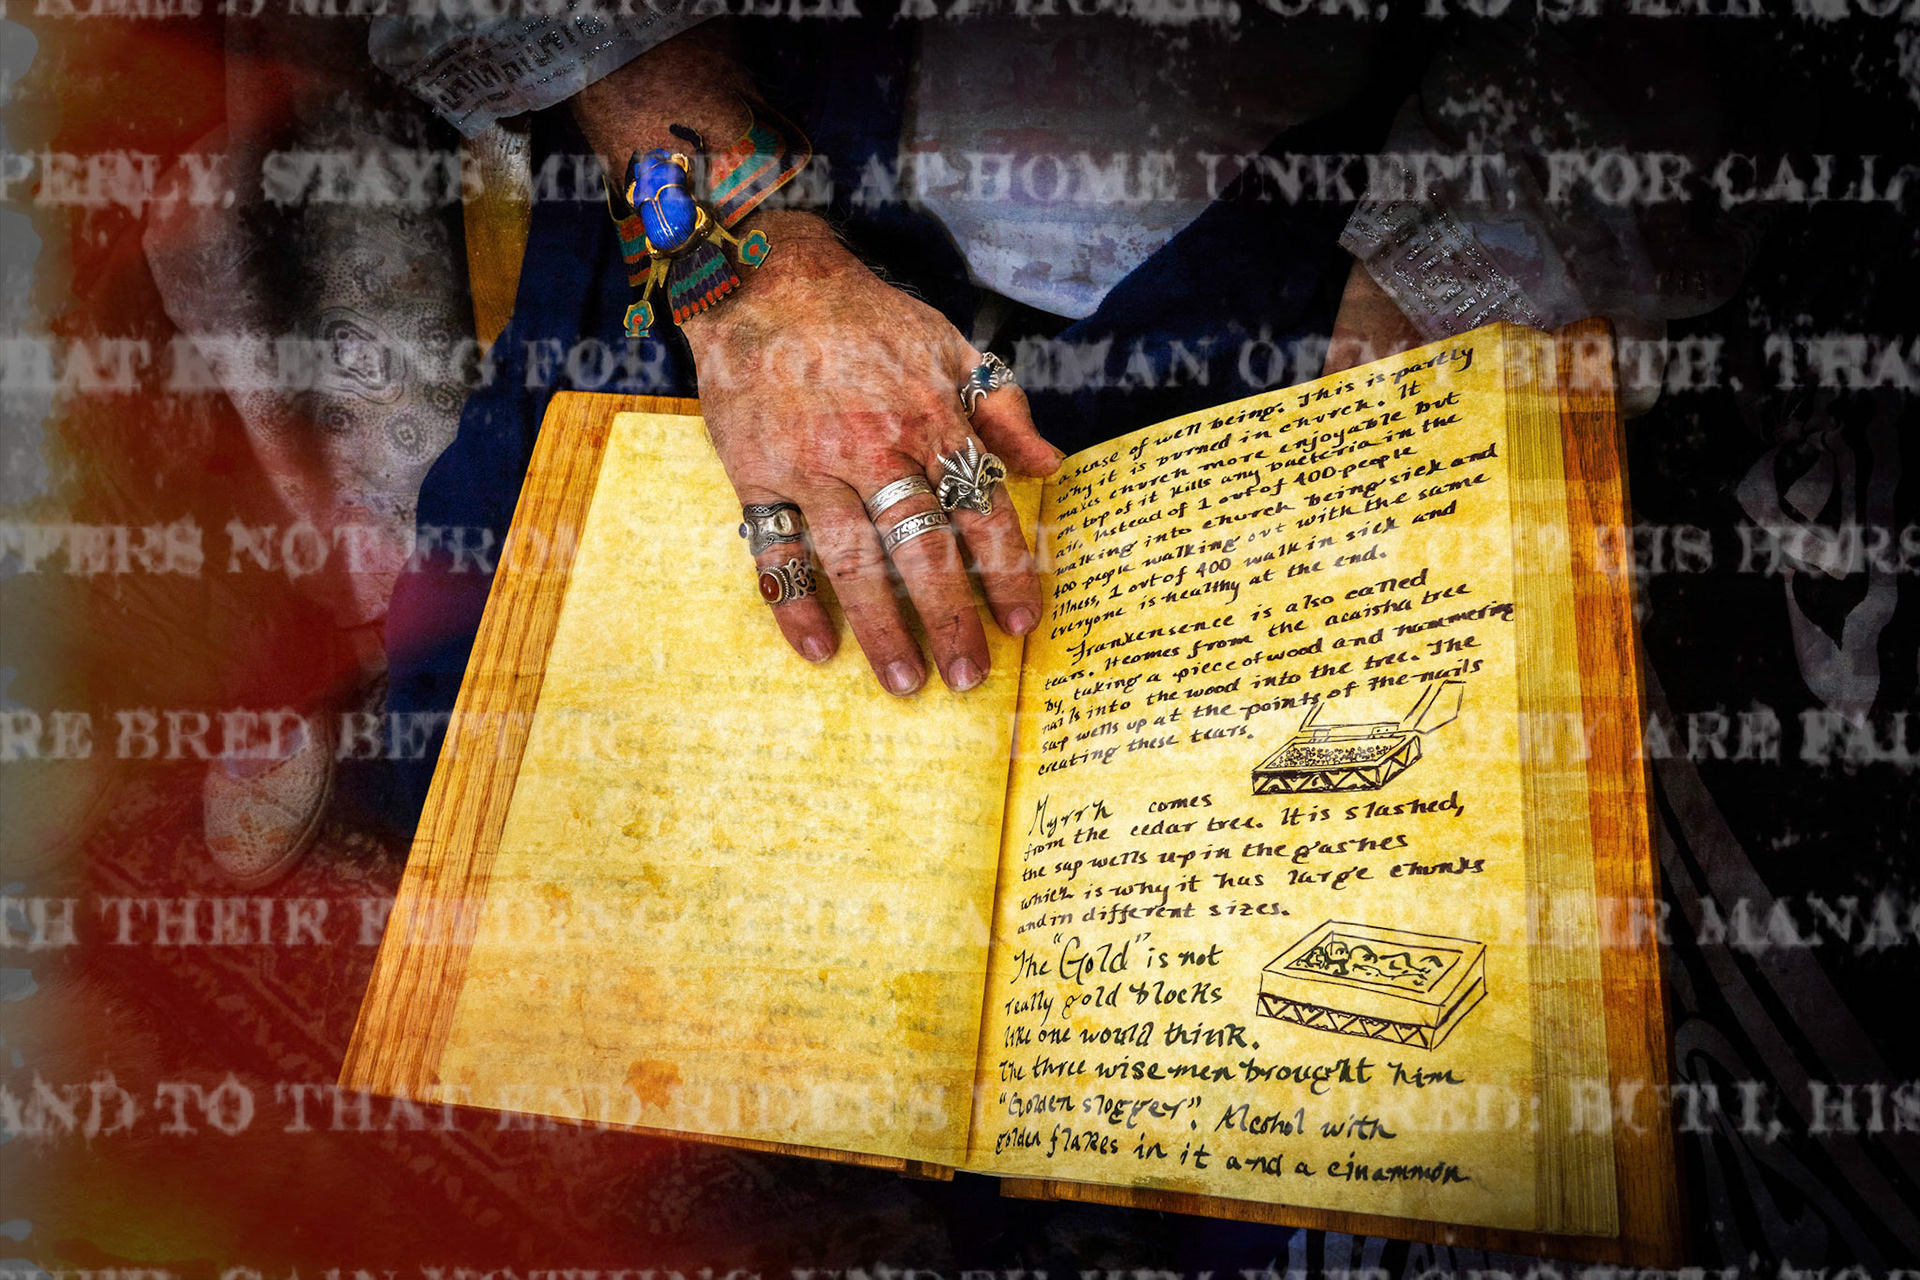 KEEPS ME RUSTICALLY AT HOME, OR, TO SPEAK MO
PERLY, STAYS ME HERE AT HOME UNKEPT; FOR CALL
HAT KEEPING FOR A GENTLEMAN OF MY BIRTH, THA
FFERS NOT FROM HIS HORS
RE BRED BETTE Y ARE FAI
CH THEIR FEEDI EIR MANAG
AND TO THAT END RIDERS RED; BUT I, HIS
GAIN NOTHING UNDER
a sense of well being. This is partly
why it is burned in church. It
makes church more enjoyable but
on top of it kills any bacteria in the
air. Instead of 1 out of 400 people
walking into church being sick and
400 people walking out with the same
illness, 1 out of 400 walk in sick and
everyone is healthy at the end.
Frankensence is also called
tears. It comes from the acaisha tree
by taking a piece of wood and hammering
nails into the wood into the tree. The
sap wells up at the points of the nails
creating these tears.
Myrrh comes
from the cedar tree. It is slashed,
the sap wells up in the gashes
which is why it has large chunks
and in different sizes.
The "Gold" is not
really gold blocks
like one would think.
The three wisemen brought him
"Golden slogger". Alcohol with
golden flakes in it and a cinammon